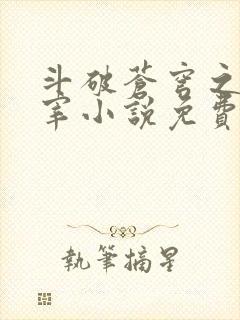 斗破蒼穹之
宰小說免費
執筆摘星